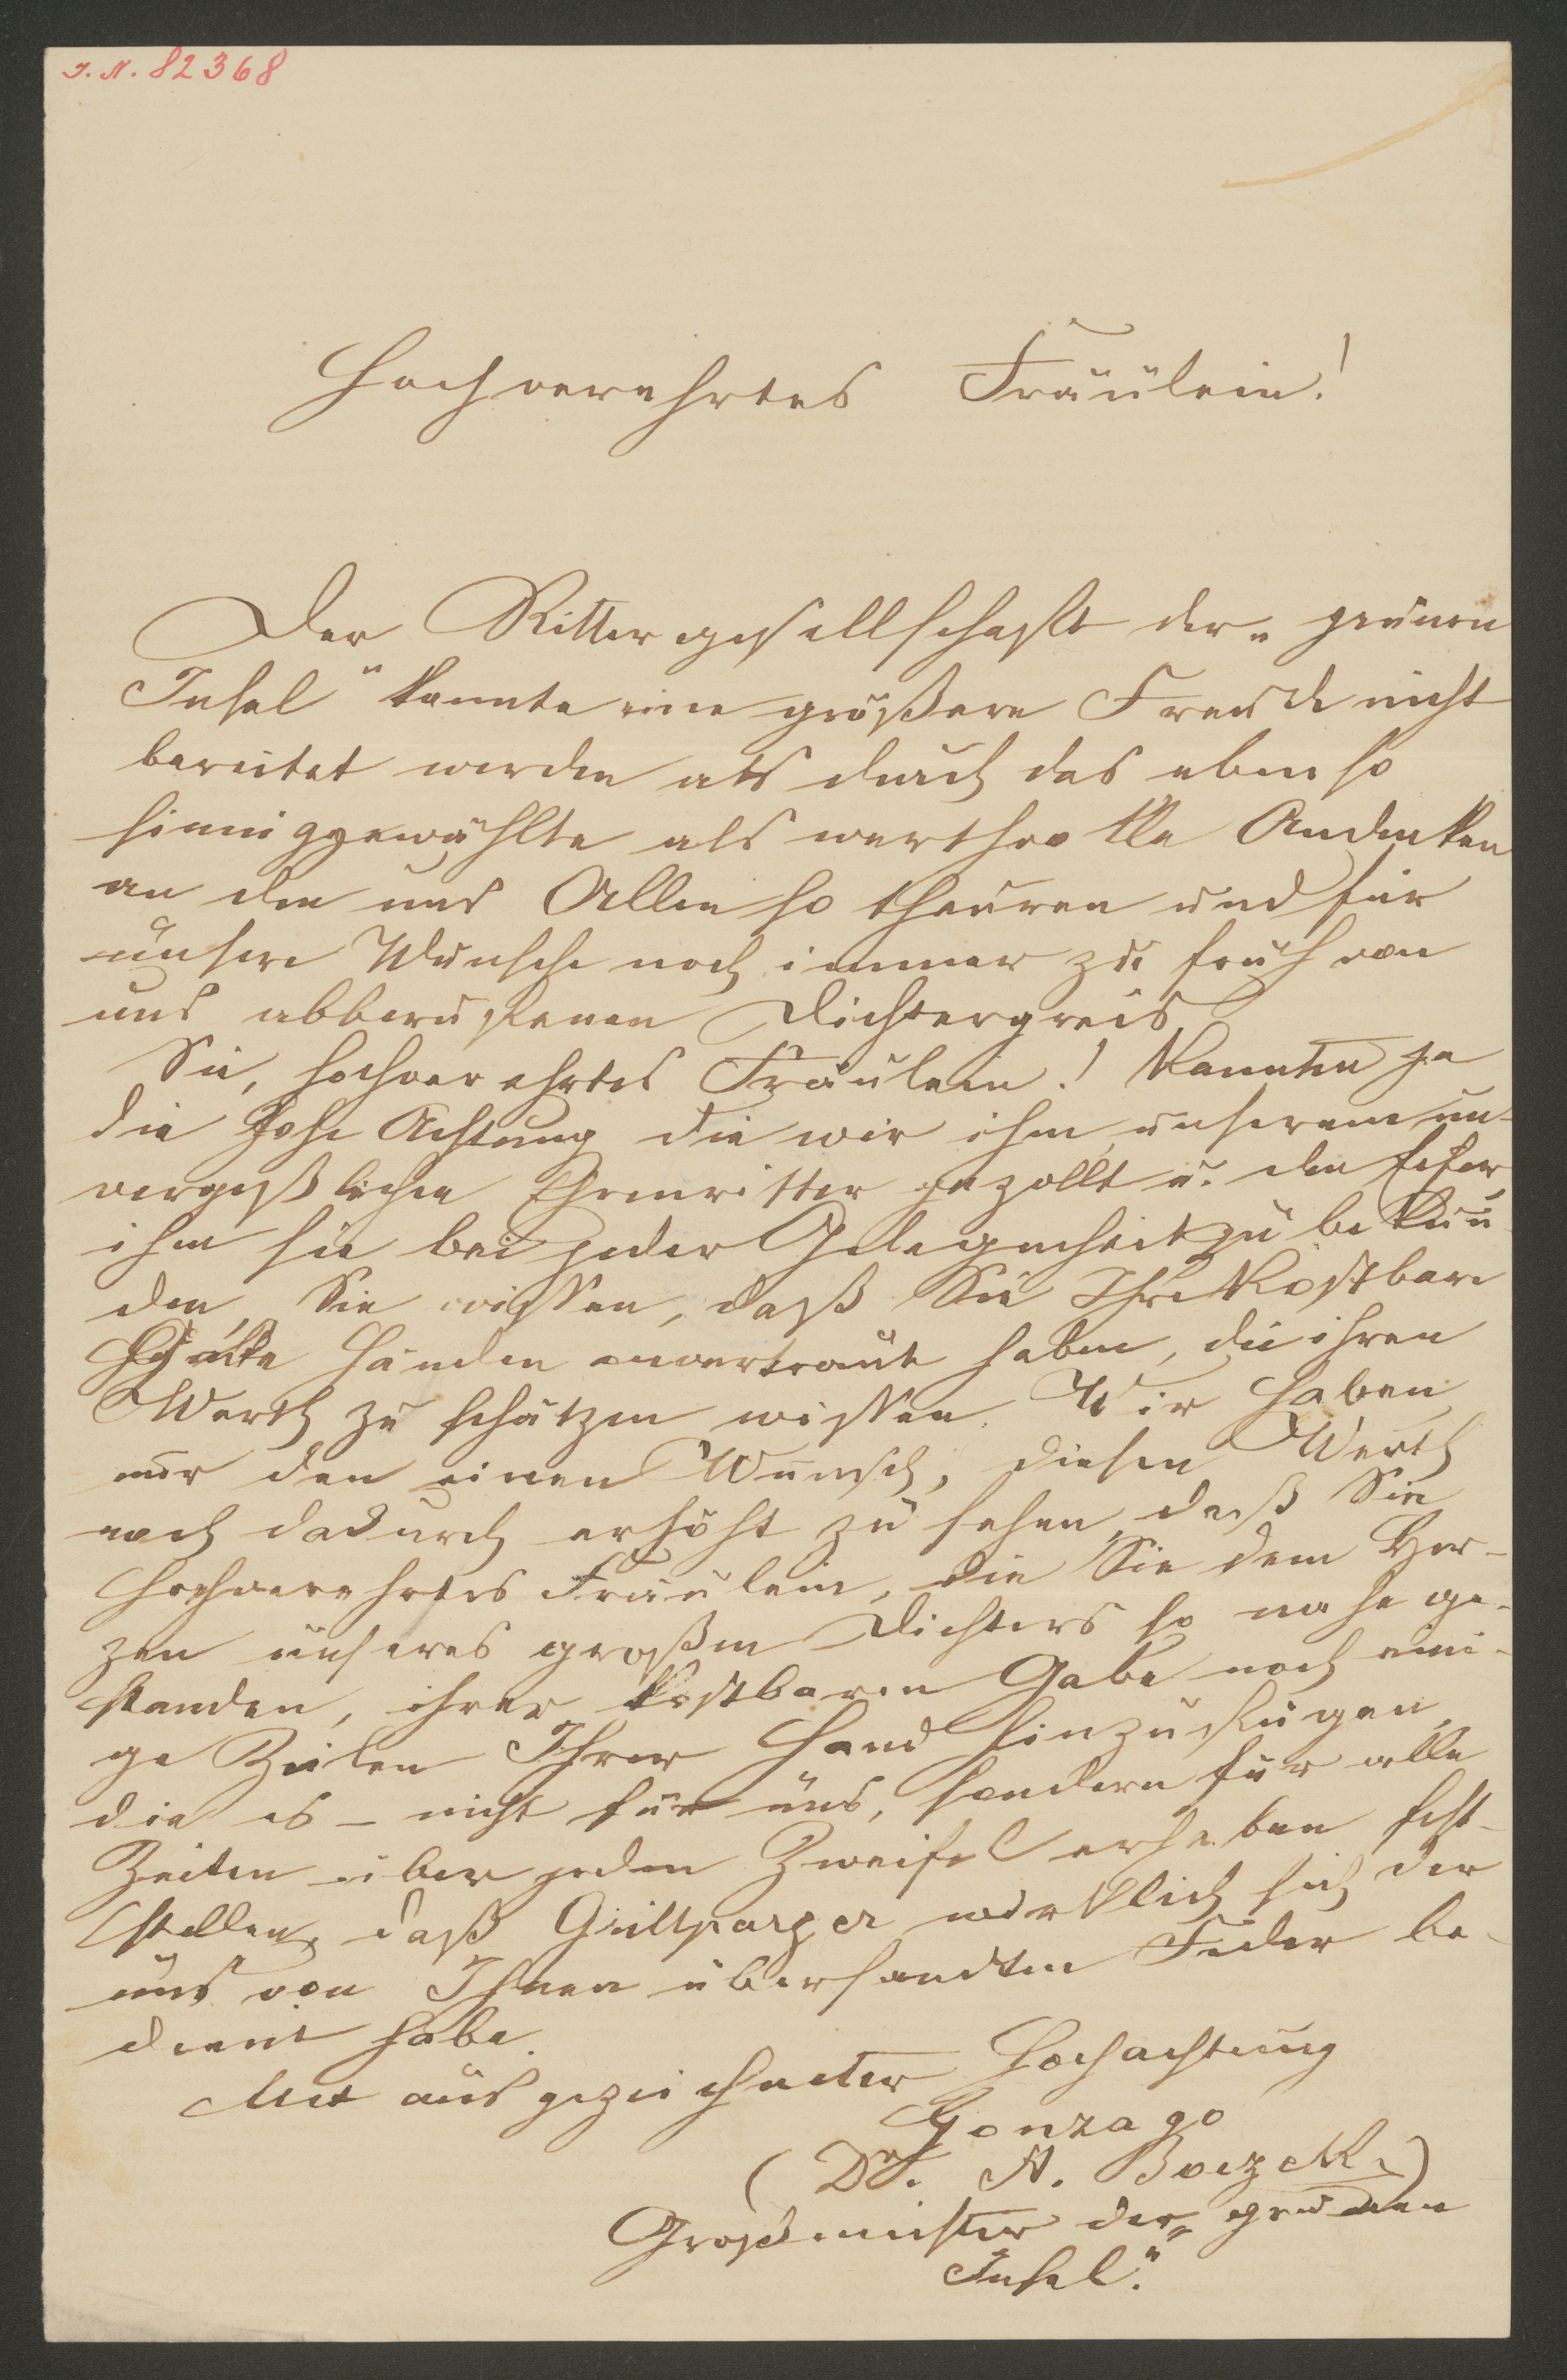 I. N. 82368
Hochverehrtes Fräulein!
Der Rittergesellschaft der „grünen
Insel" konnte eine größere Freude nicht
bereitet werden als durch das eben so
sinniggewählte als werthvolle Andenken
an den uns Allen so theuren und für
unsere Wünsche noch immer zu früh von
uns abberufenen Dichtergreis.
Sie, hochverehrtes Fräulein! kannten ja
die hohe Achtung die wir ihm, unserem un-
vergeßlichen Ehrenritter gezollt u. den Eifer,
ihm sie bei jeder Gelegenheit zu bekun-
den, Sie wissen, daß Sie Ihre kostbare
Händen anvertraut haben, die ihren
Werth zu schätzen wissen. Wir haben
nur den einen Wunsch, diesen Werth
noch dadurch erhöht zu sehen, daß Sie
hochverehrtes Fräulein, die Sie dem Her-
zen unseres großen Dichters so nahe ge-
standen, ihrer kostbaren Gabe noch eini-
ge Zeilen Ihrer Hand hinzufügen,
die es – nicht für uns, sondern für alle
Zeiten über jeden Zweifel erhaben fest-
stellen, daß Grillparzer wirklich sich der
uns von Ihnen übersandten Feder be-
dient habe.
Mit ausgezeichneter Hochachtung
Gonzago
(Dr. A. Boczek.)
Großmeister der „grünen
Insel."